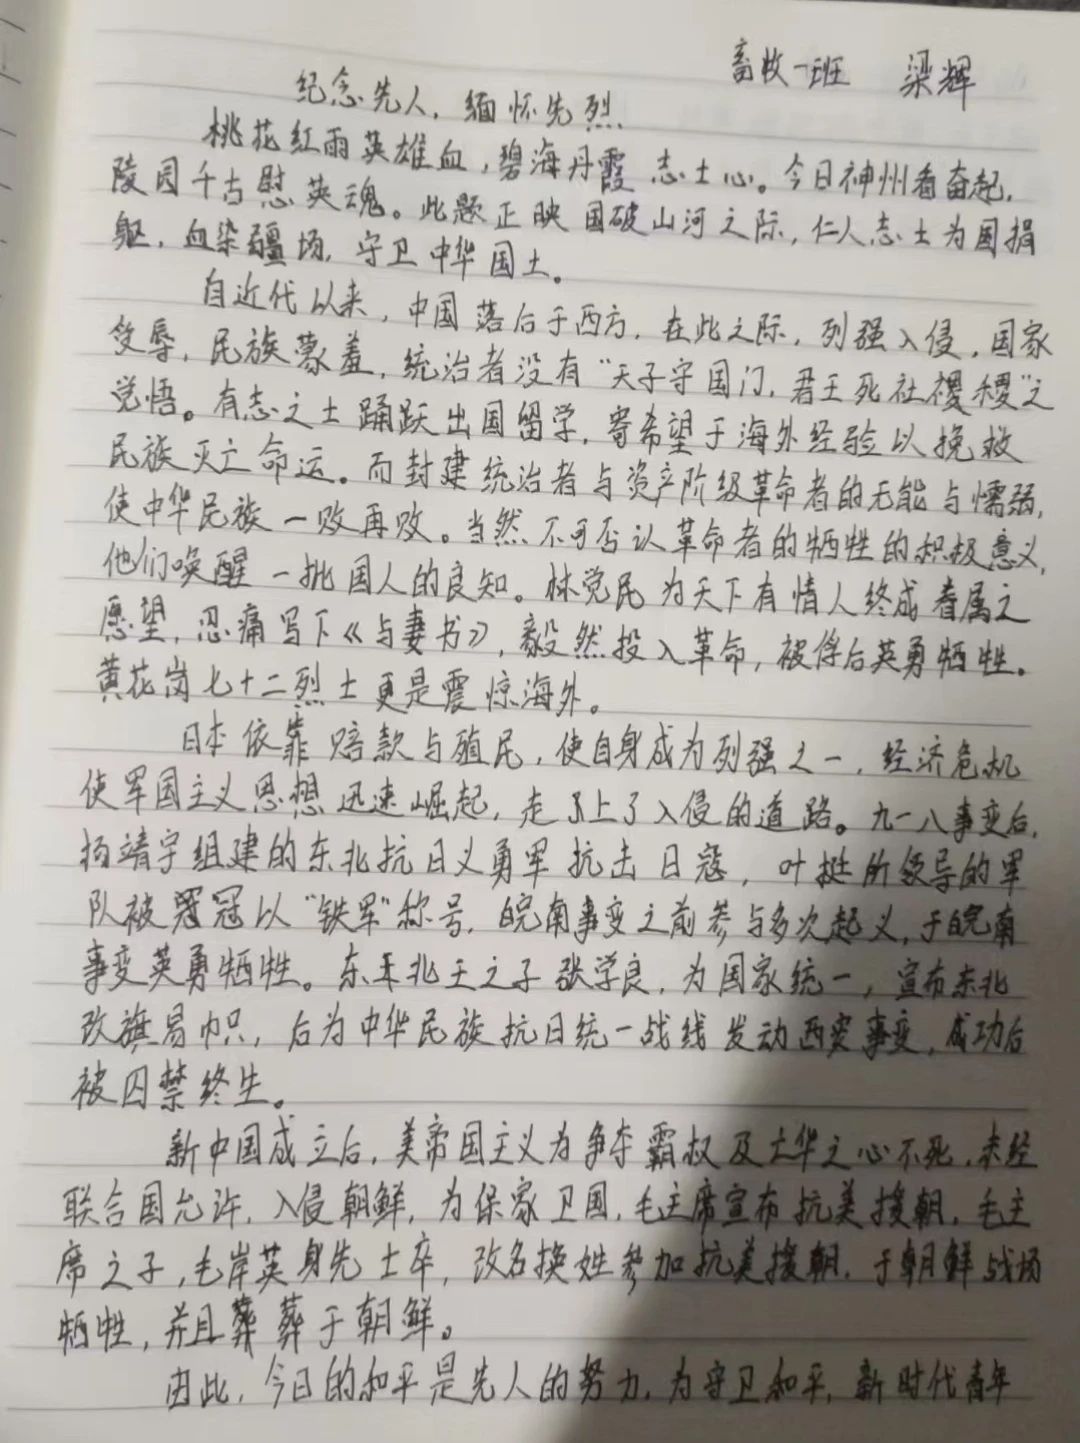 畜牧一班 梁辉
纪念先人，缅怀先烈
桃花红雨英雄血，碧海丹霞志士心。今日神州看奋起，
陵园千古慰英魂。此题正映国破山河之际，仁人志士为国捐
躯，血染疆场，守卫中华国土。
自近代以来，中国落后于西方，在此之际，列强入侵，国家
受辱，民族蒙羞，统治者没有“天子守国门，君王死社稷”之
觉悟。有志之士踊跃出国留学，寄希望于海外经验以挽救
民族灭亡命运。而封建统治者与资产阶级革命者的无能与懦弱，
使中华民族一败再败。当然不可否认革命者的牺牲的积极意义，
他们唤醒一批国人的良知。林觉民为天下有情人终成眷属之
愿望，忍痛写下《与妻书》，毅然投入革命，被俘后英勇牺牲。
黄花岗七十二烈士更是震惊海外。
日本依靠赔款与殖民，使自身成为列强之一，经济危机
使军国主义思想迅速崛起，走上了入侵的道路。九一八事变后，
杨靖宇组建的东北抗日义勇军抗击日寇，叶挺所领导的军
队被冠以“铁军”称号，皖南事变之前参与多次起义，于皖南
事变英勇牺牲。东北王之子张学良，为国家统一，宣布东北
改旗易帜，后为中华民族抗日统一战线发动西安事变，成功后
被囚禁终生。
新中国成立后，美帝国主义为争夺霸权及亡华之心不死，未经
联合国允许，入侵朝鲜，为保家卫国，毛主席宣布抗美援朝，毛主
席之子，毛岸英身先士卒，改名换姓参加抗美援朝，于朝鲜战场
牺牲，并且葬于朝鲜。
因此，今日的和平是先人的努力，为守卫和平，新时代青年